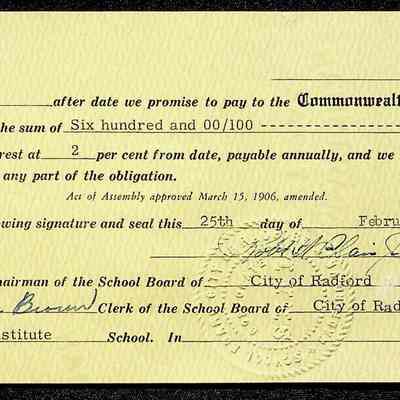 after date we promise to pay to the Commonwealt
the sum of Six hundred and 00/100
rest at 2 per cent from date, payable annually, and we
any part of the obligation.
Act of Assembly approved March 15, 1906, amended.
wing signature and seal this 25th day of Febru
hairman of the School Board of City of Radford
Brown Clerk of the School Board of City of Rad
stitute School. In